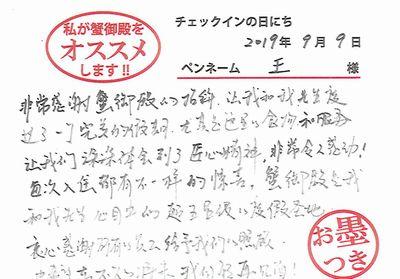 私が蟹御殿を
オススメ
します!!
チェックインの日にち
2019年 9月 9日
ペンネーム 王 様
非常感谢蟹御殿的招待,让我和我先生度
过了一个完美的假期,尤其是这里的食物和服务
让我们深深体会到了匠心精神,非常令人感动!
每次入住都有不一样的惊喜,蟹御殿是我
和我先生心目中的 度假圣地
衷心感谢所有 给予我们的照顾
我们 再
お墨
つき